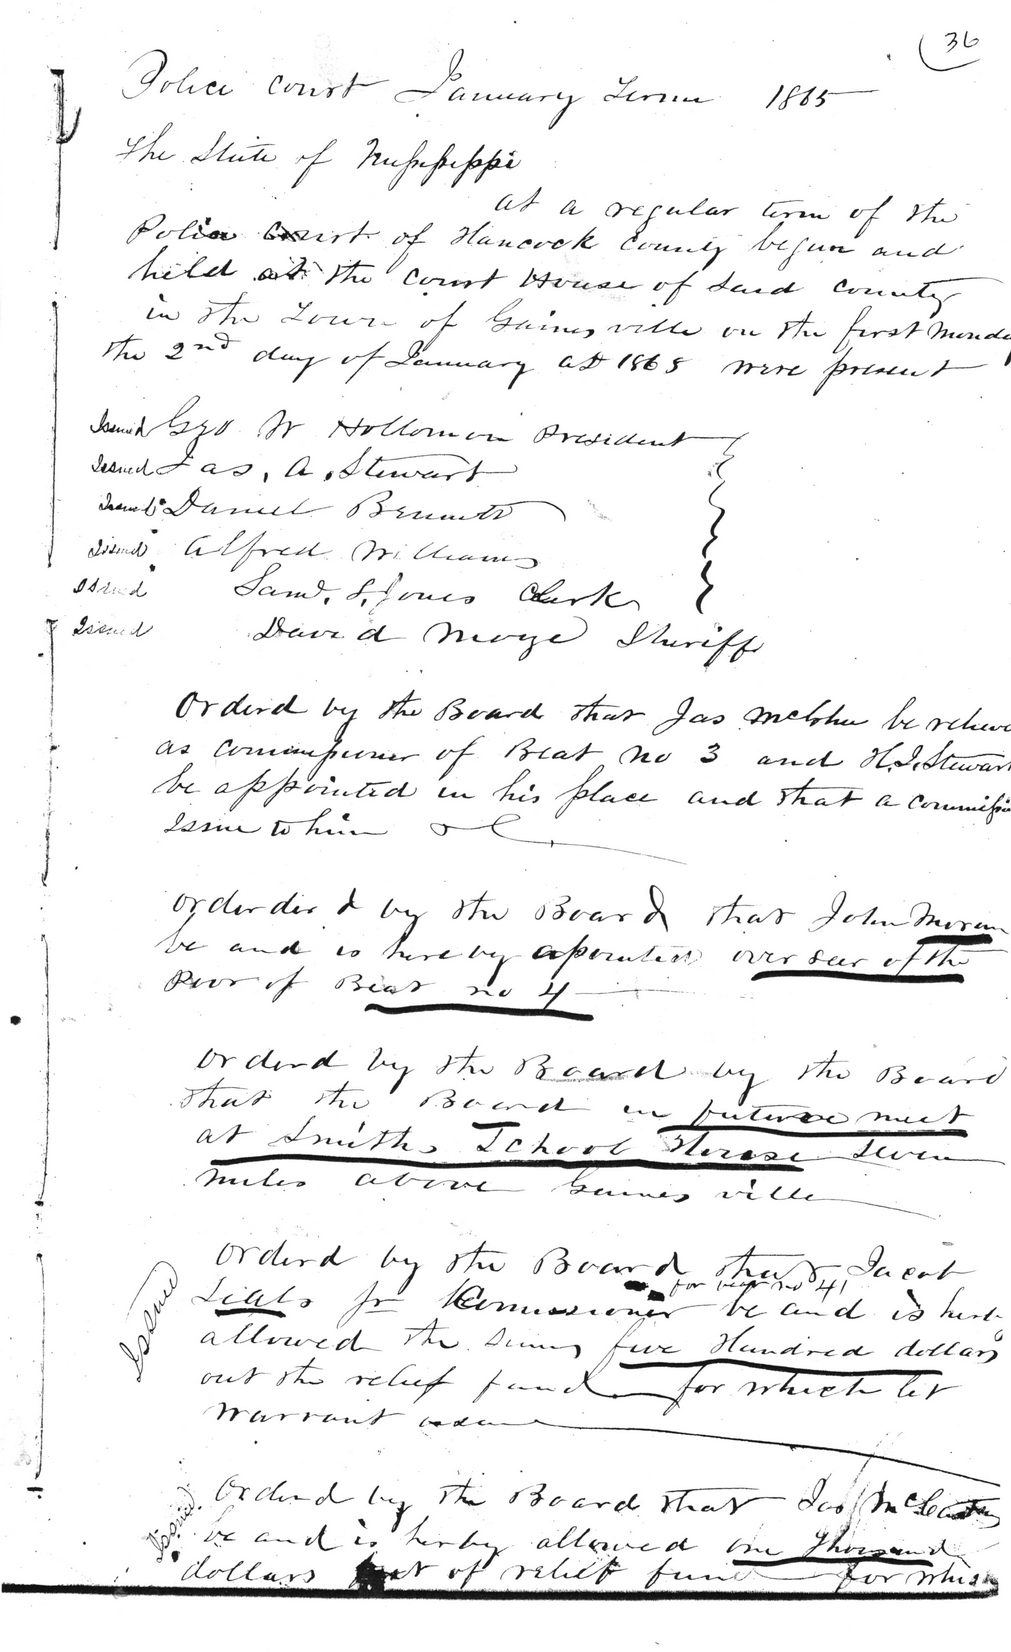 36
Police Court January Term 1865
The State of Mississippi
at a regular term of the
Police Court of Hancock County begun and
held at the Court House of Said County
in the Town of Gainesville on the first Monday
the 2nd day of January AD 1865 were present
Issued Geo W Holloman President
Issued Jas. A. Stewart
Issued Daniel Bennett
Issued Alfred Williams
Issued Saml. S. Jones Clerk
Issued David Moye Sheriff
Orderd by the Board that Jas be relieve
as commissioner of Beat no 3 and H. J. Stewart
be appointed in his place and that a commissio
Issue to him &c
orderderd by the Board that John Moran
be and is hereby apointed over seer of the
Poor of Beat no 4
Orderd by the Board by the Board
that the Board in future meet
at Smiths School House Seven
miles above Gainesville
Orderd by the Board that Jacob
for beat no 4
Issued Seals Jr Commissioner be and is herby
allowed the sum five Hundred dollars
out the relief fund for which let
warrant issue
Orderd by the Board that Jas
Issued be and is herby allowed one Thousand
dollars out of relief fund for which